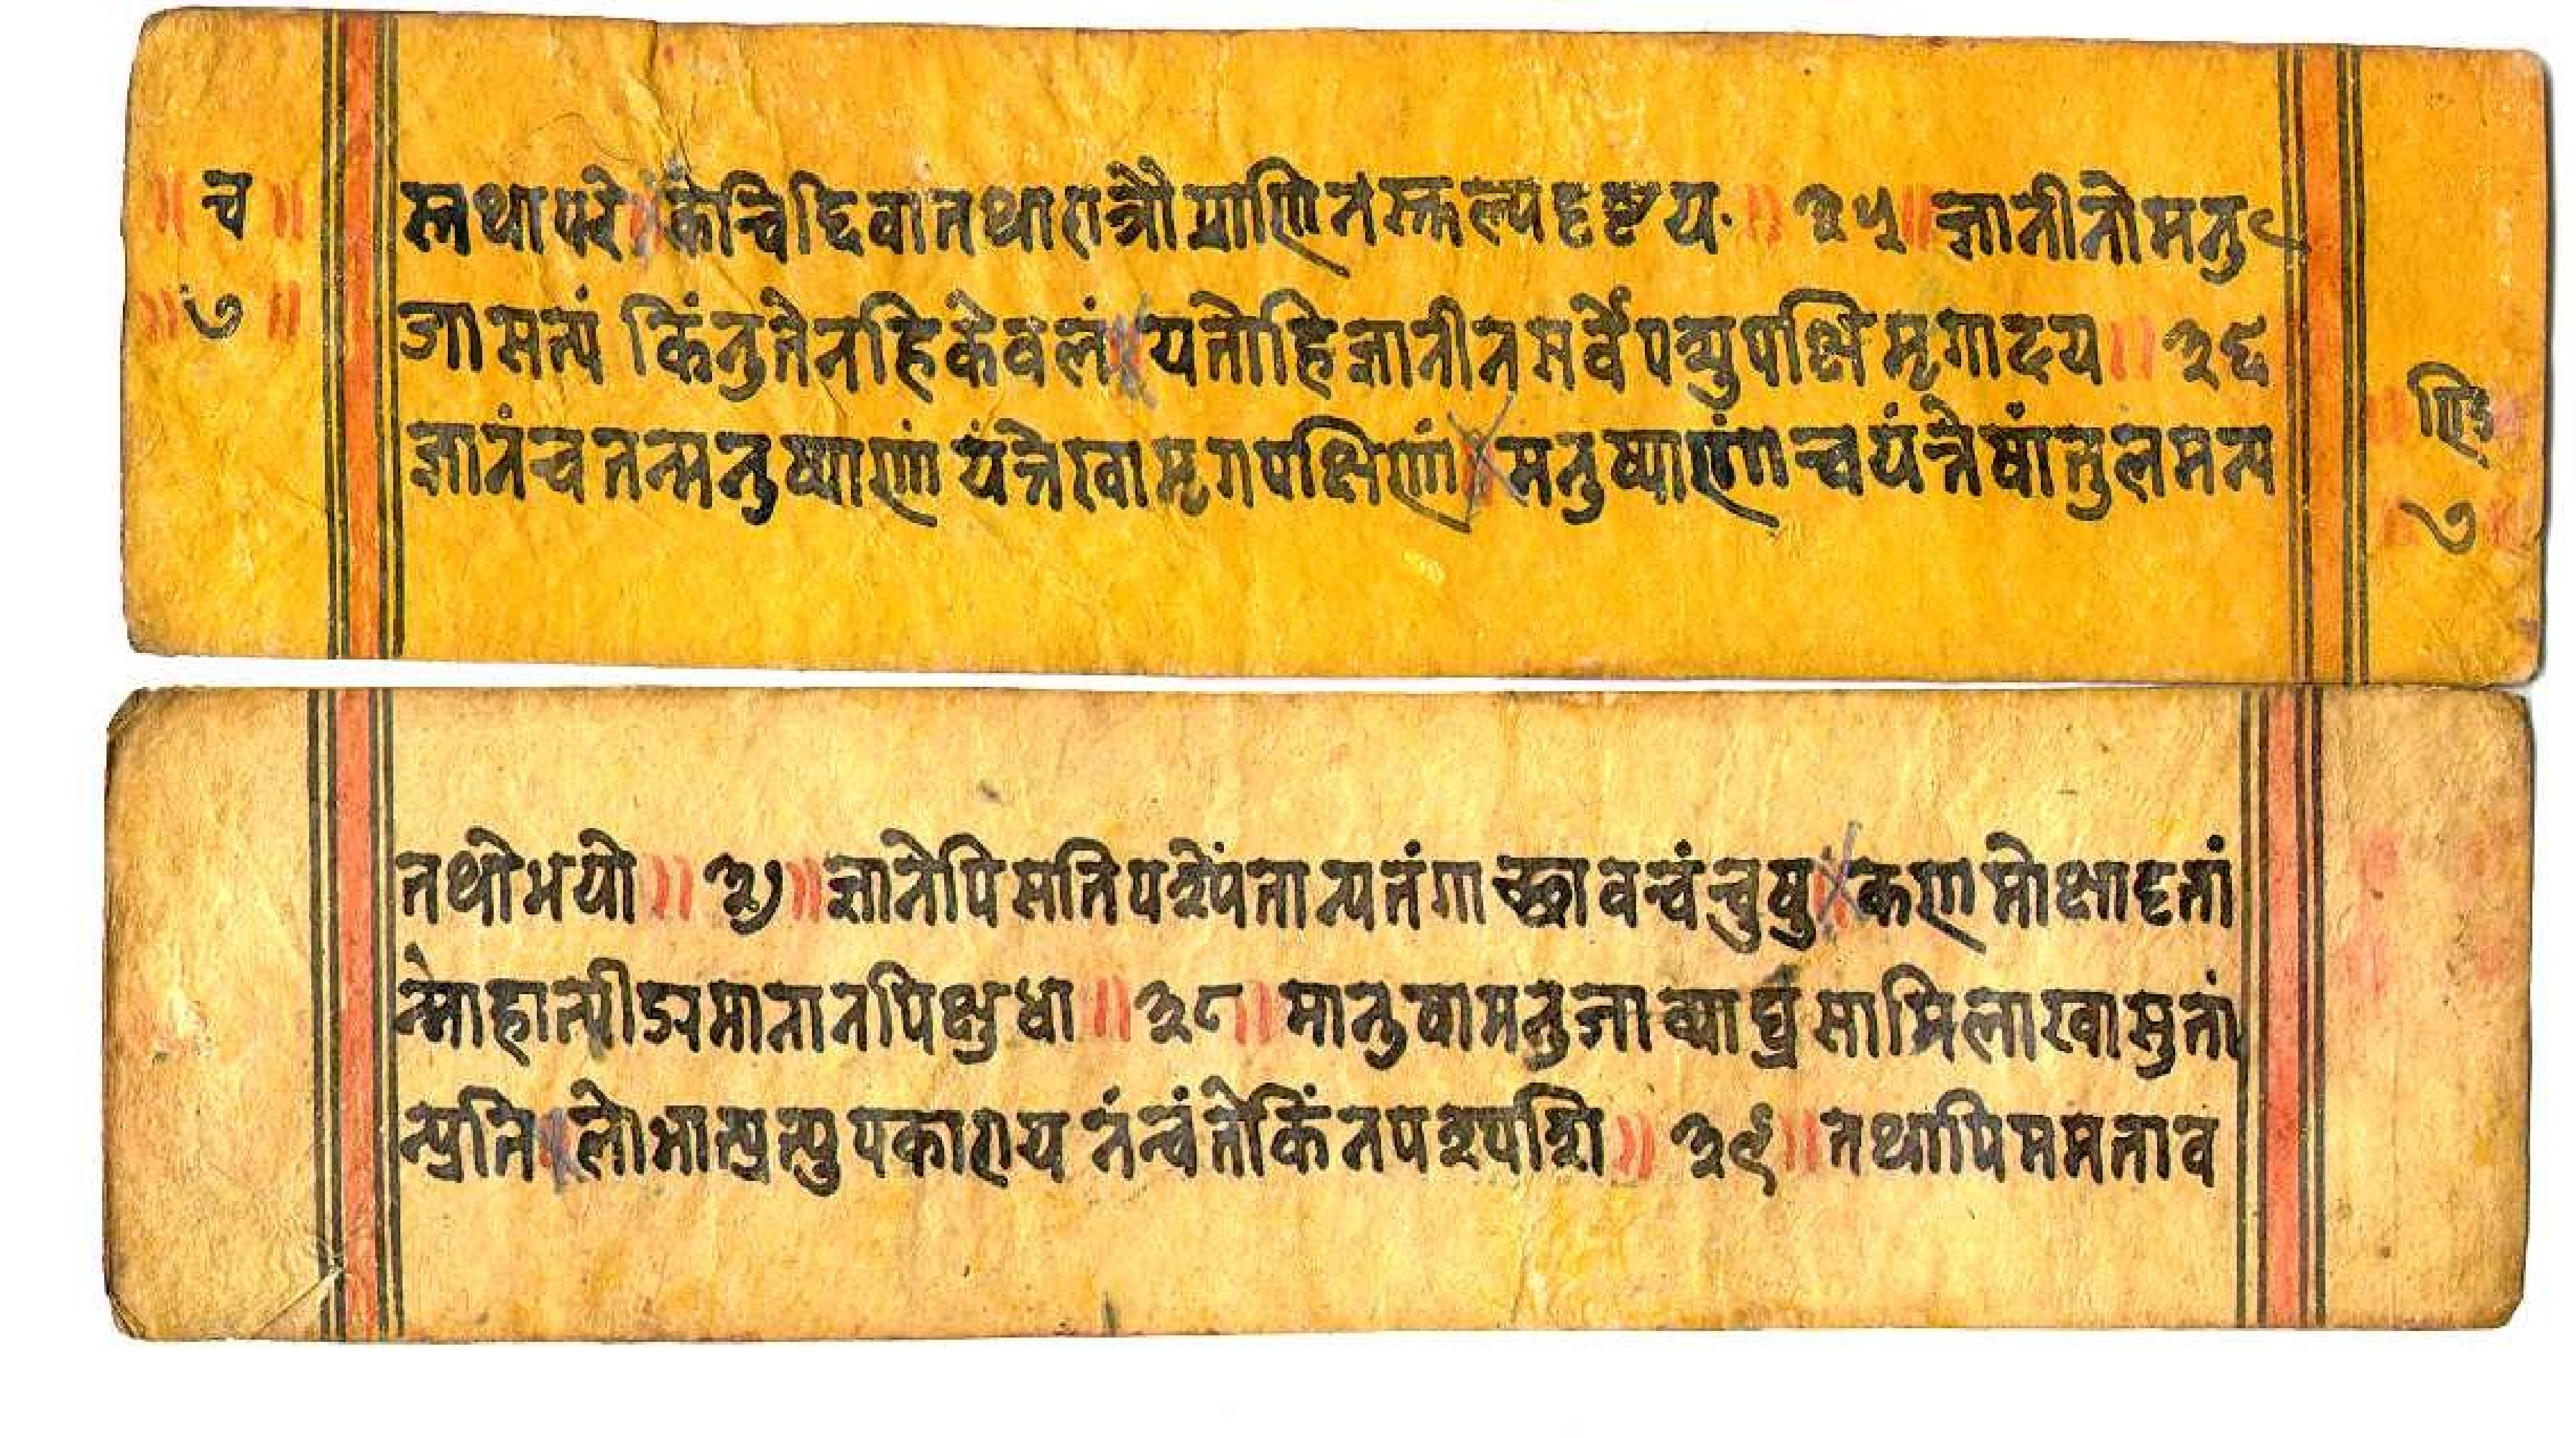 ॥ च ॥
॥ ७ ॥
स्तथापरे । केचिद्दिवातथारात्रौप्राणिनस्तुल्यदृष्टय. ॥ ३५ ॥ ज्ञानीनोमनु
जा सत्यं किंतुतेनहिकेवलं । यतोहिज्ञानीन सर्वेपश्युपक्षि मृगादय ॥ ३६
ज्ञानंचतन्मनुष्याणां यंत्तेखामृगपक्षिणां । मनुष्याणांचयंत्तेषांतुलमन्य
ण्डि
७
तथोभयो ॥ ३७ ॥ ज्ञानेपिसतिपश्येंतान्पतंगाच्छावचंचुषु । कणमोक्षादृतां
न्मोहात्पीड्यमानानपिक्षुधा ॥ ३८ ॥ मानुषामनुजाव्याघ्रसाभिलाखासुतां
न्प्रति । लोभात्प्रत्युपकाराय नंन्वंतेकिंनपश्यशि ॥ ३९ ॥ तथापिममताव